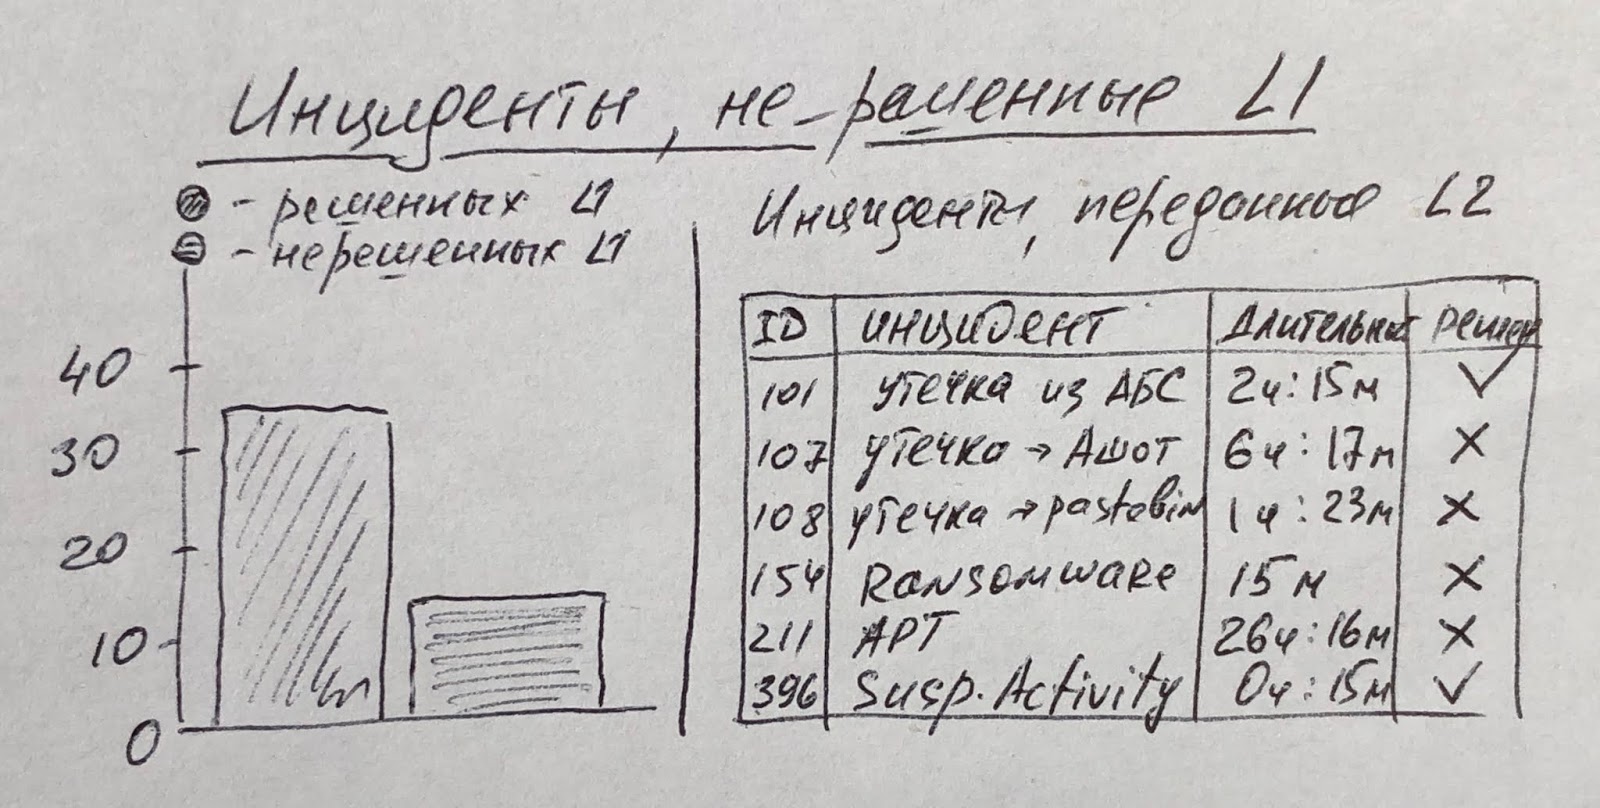 Инциденты, не-рашенные L1
- решенных L1
- нерешенных L1
40
30
20
10
0
Инциденты, переданные L2
ID инцидент Длительн Решен
101 утечка из АБС 2ч:15м ✓
107 утечка → Ашот 6ч:17м ✗
108 утечка → pastebin 1ч:23м ✗
154 Ransomware 15м ✗
211 APT 26ч:16м ✗
396 Susp. Activity 0ч:15м ✓